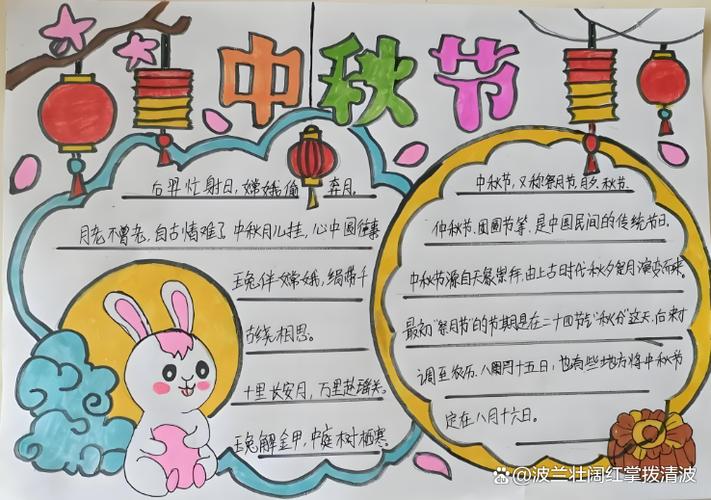 中秋节
后羿忙射日，嫦娥偷 奔月。
月老不曾老，自古情难了 中秋月儿挂，心中圆
玉兔伴嫦娥，绢带千
古绕相思。
十里长安月，万里关。
玉兔解金甲，中庭树栖寒。
中秋节，又称祭月节，月夕、秋节
仲秋节、团圆节等，是中国民间的传统节日。
中秋节源自天象崇拜，由上古时代秋夕祭月演变而来。
最初"祭月节"的节期是在二十四节气"秋分"这天，后来才
调至农历八月十五日，也有些地方将中秋节
定在八月十六日。
@波兰壮阔红掌拨清波